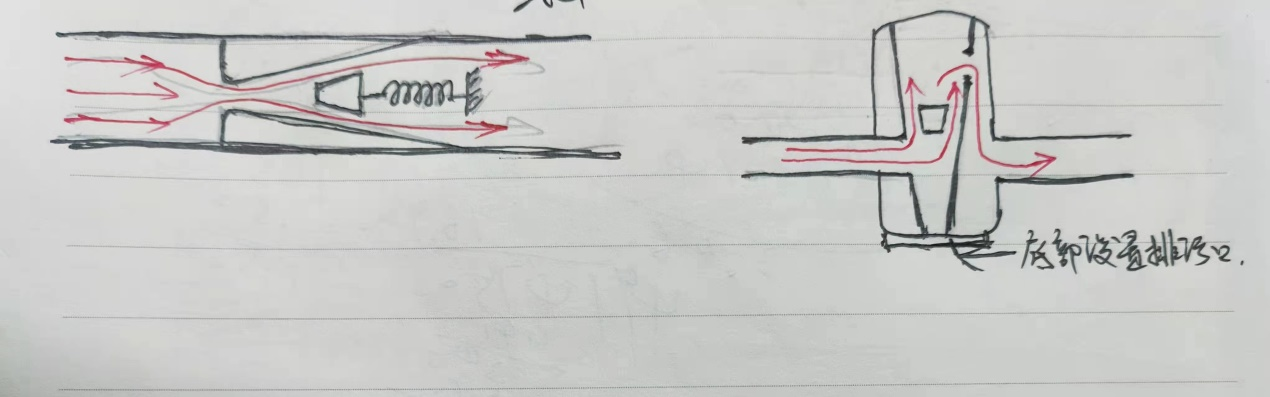 底部设置排污口.